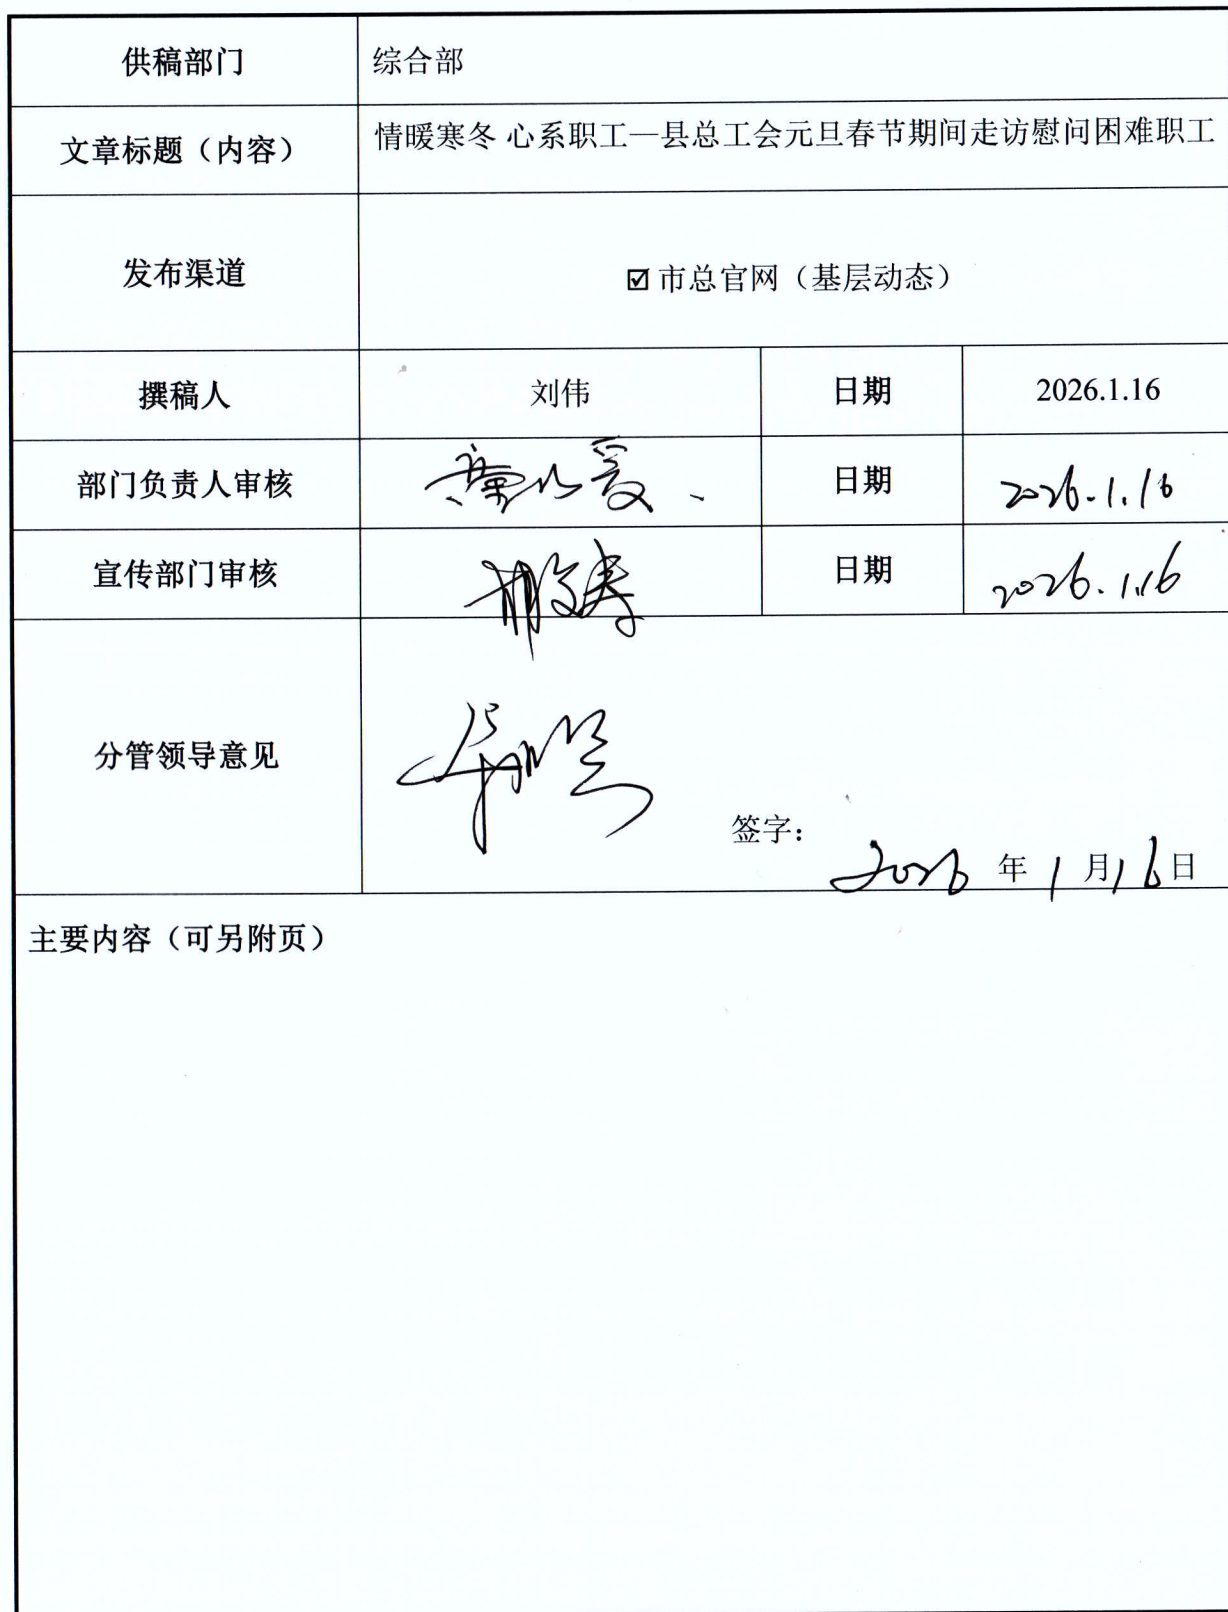 供稿部门 综合部
文章标题（内容） 情暖寒冬 心系职工—县总工会元旦春节期间走访慰问困难职工
发布渠道 ☑市总官网（基层动态）
撰稿人 刘伟 日期 2026.1.16
部门负责人审核 日期 2026.1.16
宣传部门审核 日期 2026.1.16
分管领导意见
签字：
2026 年 1 月 16 日
主要内容（可另附页）